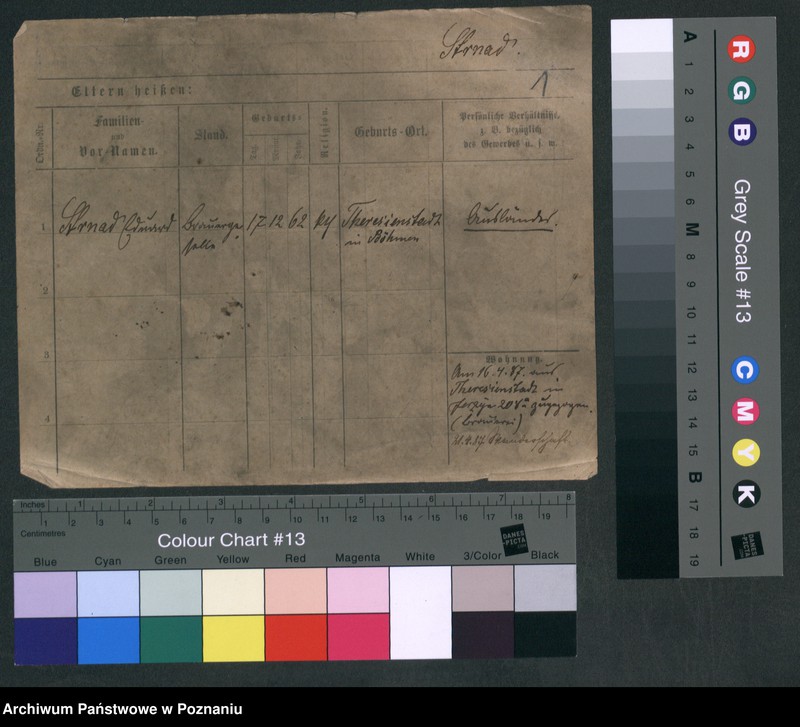 Strnad.
1
Eltern heißen:
Ordn.-Nr.
Familien-
und
Vor-Namen.
Stand.
Geburts-
Tag.
Monat.
Jahr.
Religion.
Geburts-Ort.
Persönliche Verhältnisse,
z. B. bezüglich
des Gewerbes u. s. w.
1
Strnad Eduard
Brauerge-
selle
17 12 62
Theresienstadt
in Böhmen
Ausländer.
2
3
4
Wohnung.
Am 16.4.87. aus
Theresienstadt in
zugezogen.
(Brauerei)
Wanderschaft
Inches 1 2 3 4 5 6 7 8
Centimetres 1 2 3 4 5 6 7 8 9 10 11 12 13 14 15 16 17 18 19
Colour Chart #13
Blue Cyan Green Yellow Red Magenta White 3/Color Black
DANES
-PICTA
.COM
A 1 2 3 4 5 6 M 8 9 10 11 12 13 14 15 B 17 18 19
R G B
Grey Scale #13
C M Y K
DANES
-PICTA
.COM
Archiwum Państwowe w Poznaniu